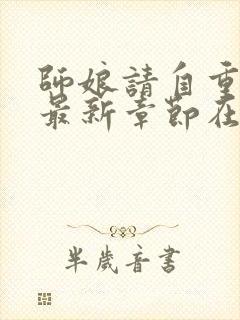 師娘請自重
最新章節在
半歲音書